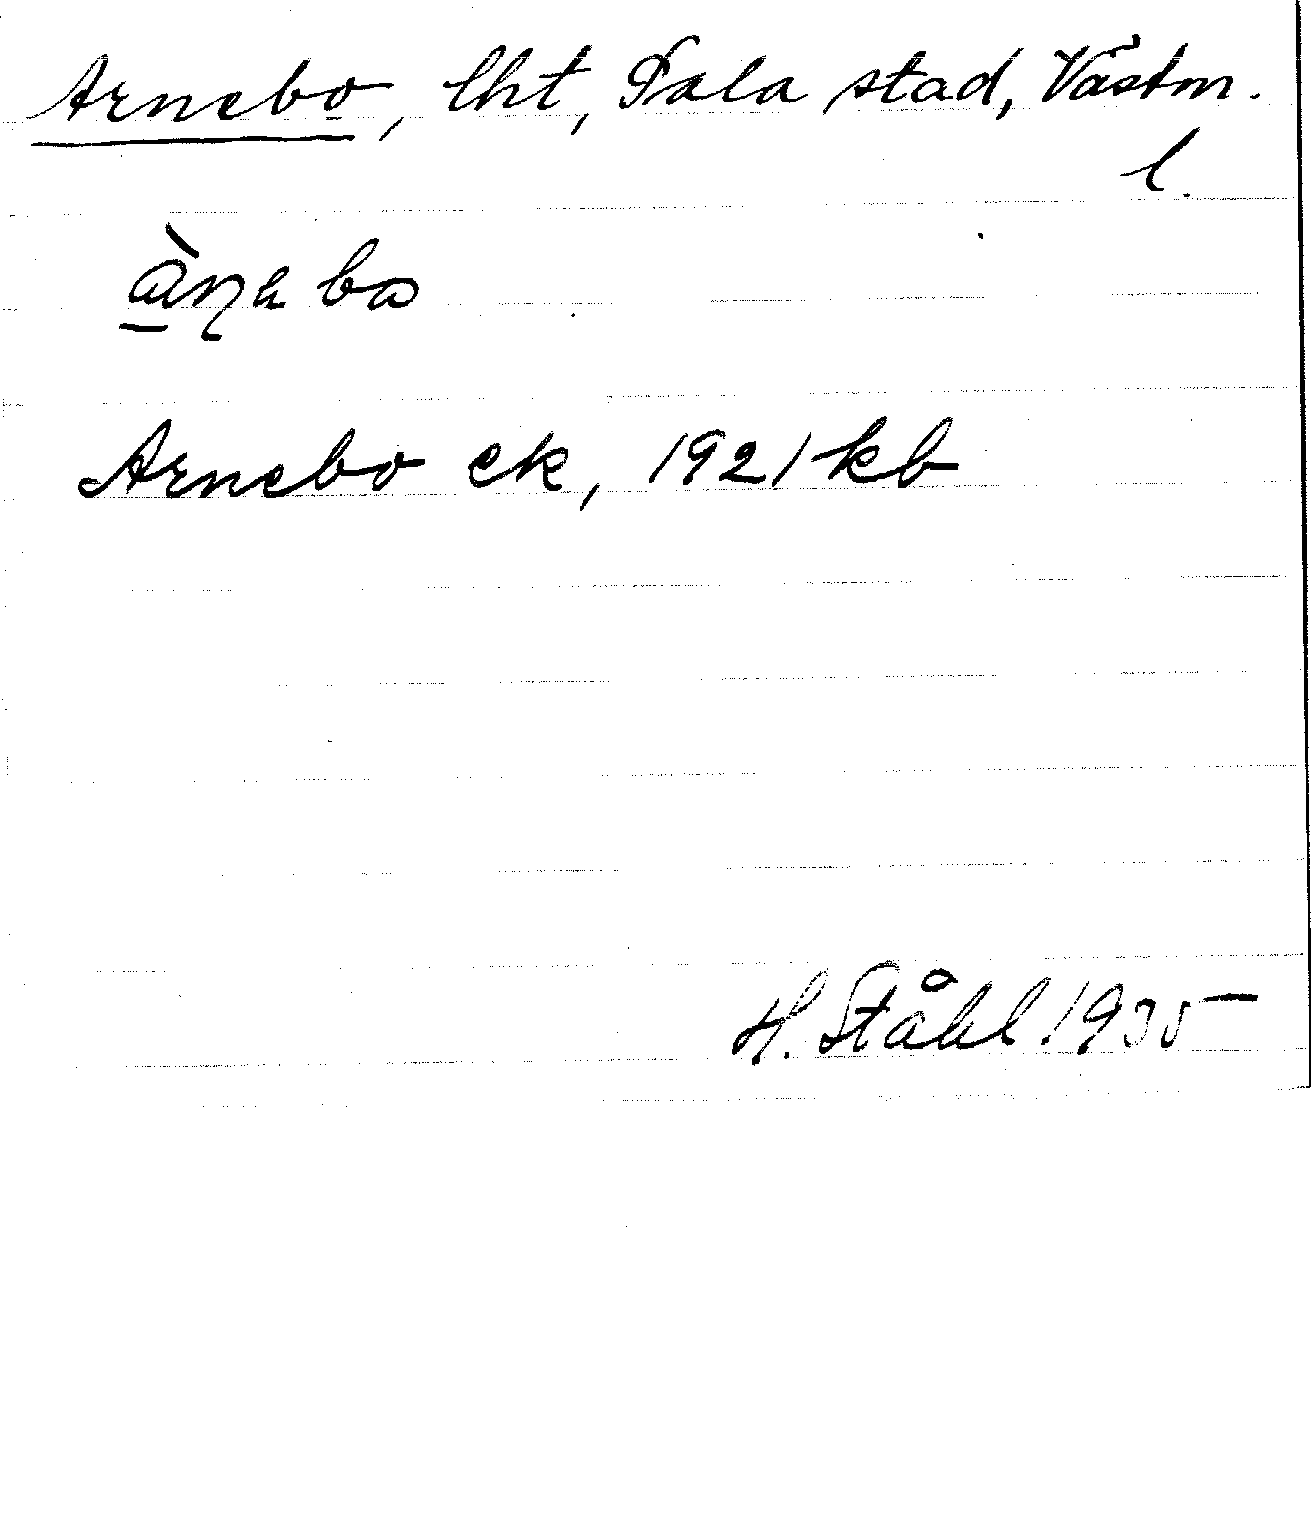 Arnebo, lht, Sala stad, Västm.
l.
Arnebo ek, 1921 kb
H. Ståhl 1935